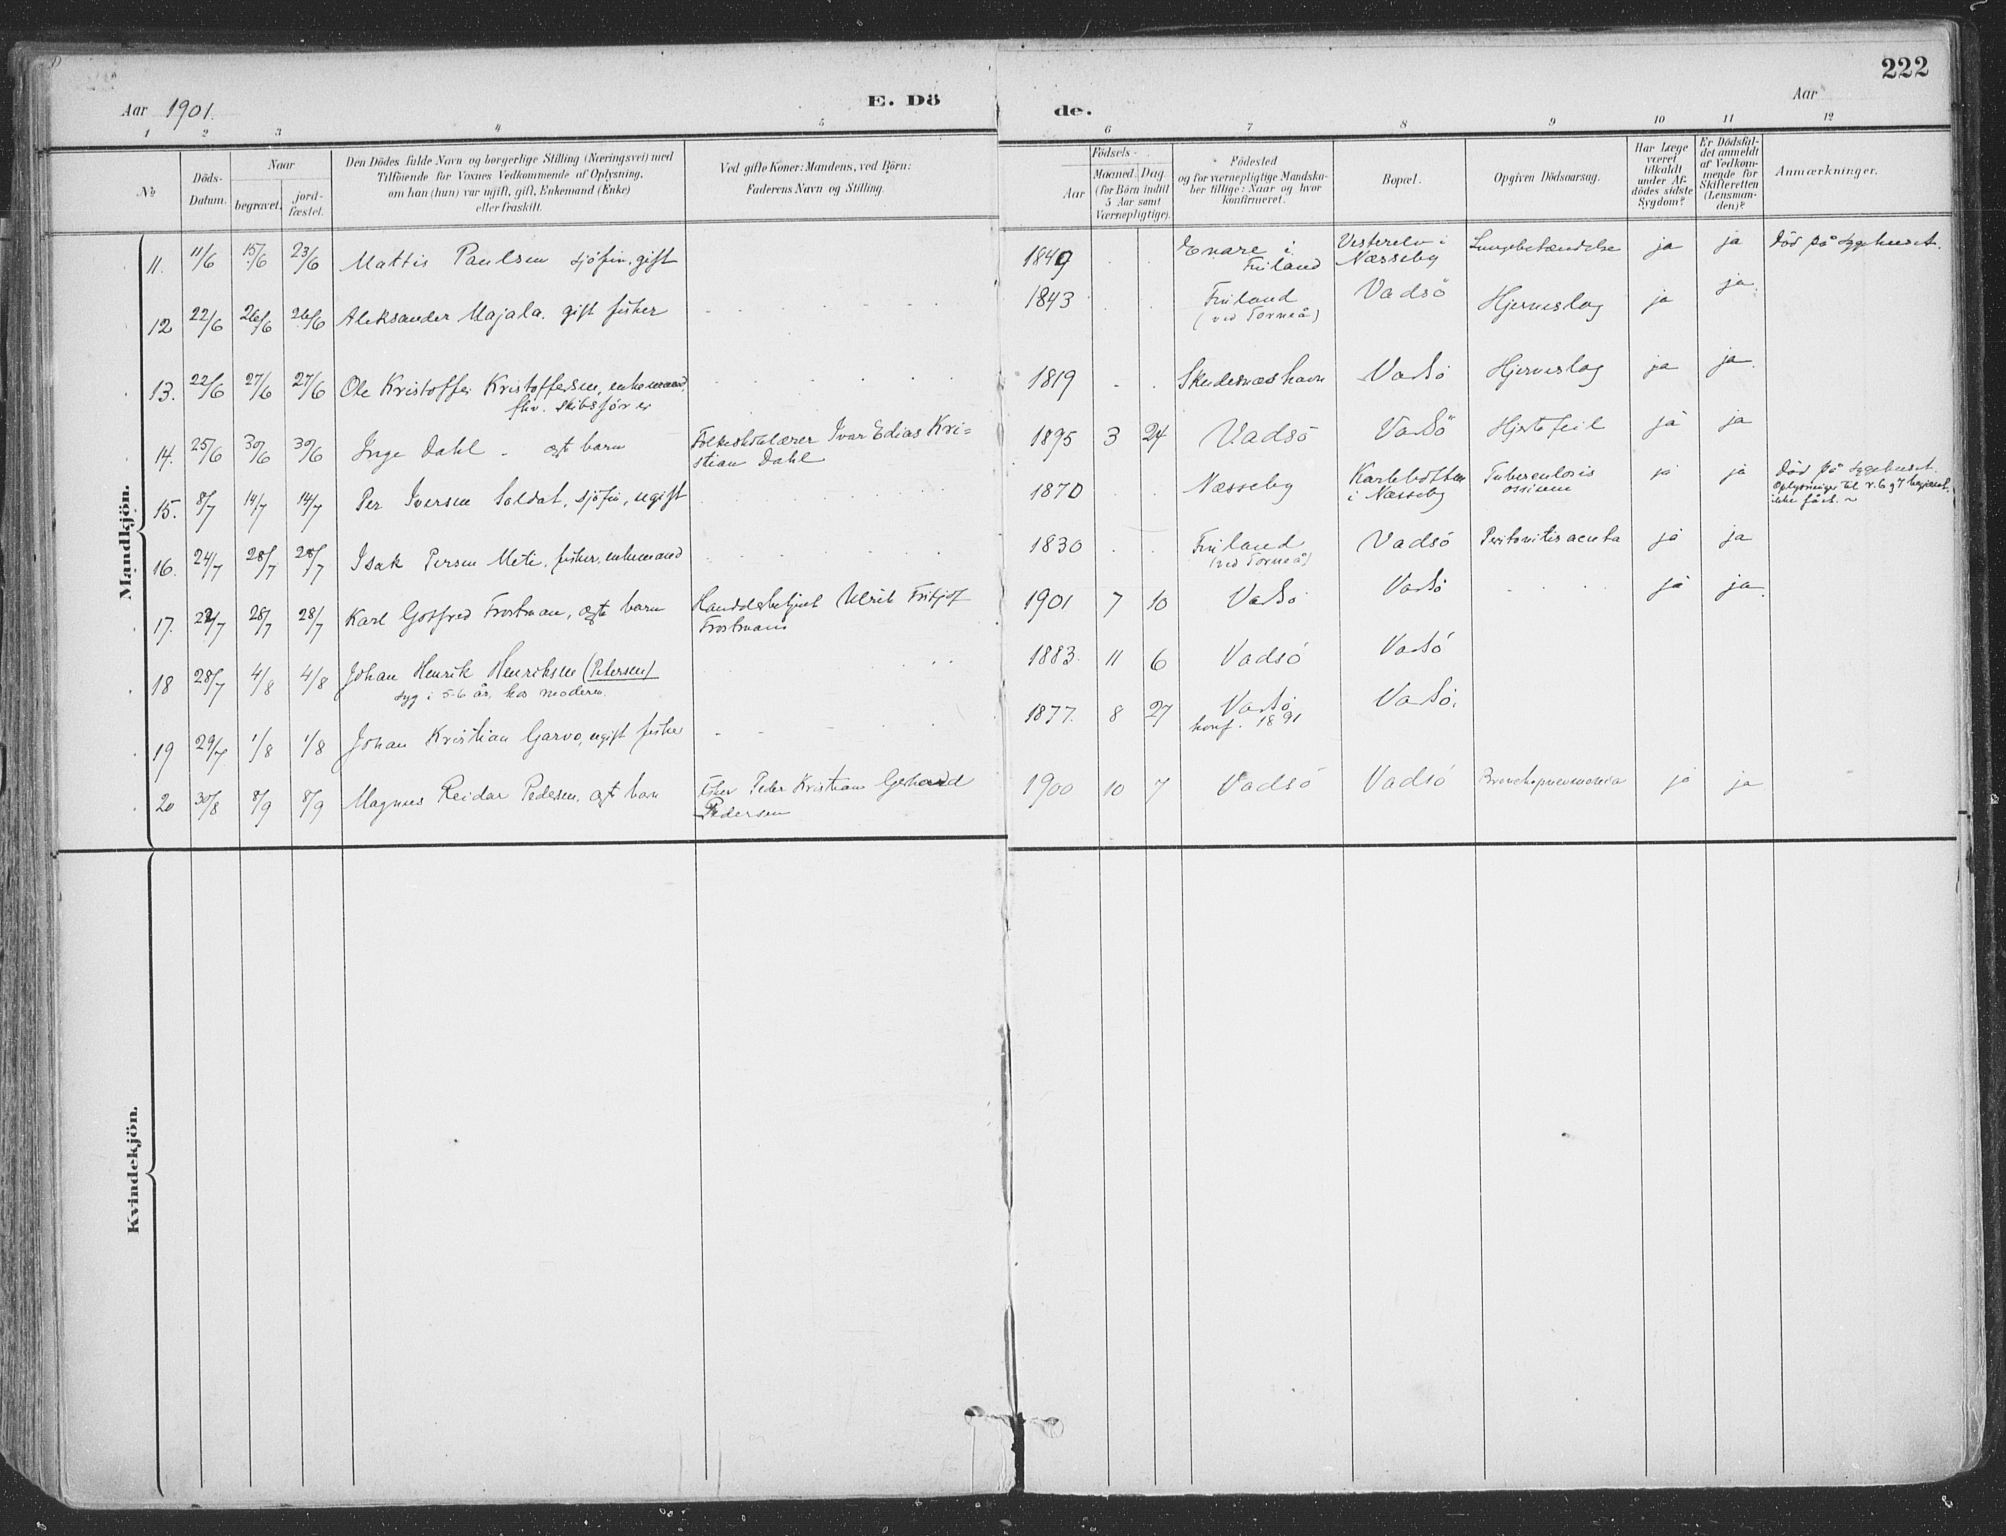 222
Aar 1901.
E. Dö
de.
Aar
1 2 3 4 5 6 7 8 9 10 11 12
№
Döds-
Datum.
Naar
begravet.
jord-
fæstet.
Den Dödes fulde Navn og borgerlige Stilling (Næringsvei) med
Tilföiende for Voxnes Vedkommende af Oplysning,
om han (hun) var ugift, gift, Enkemand (Enke)
eller fraskilt.
Ved gifte Koner: Mandens, ved Börn:
Faderens Navn og Stilling.
Födsels-
Aar
Maaned. Dag
(for Börn indtil
5 Aar samt
Værnepligtige).
Födested
og for værnepligtige Mandska-
ber tillige: Naar og hvor
konfirmeret.
Bopæl.
Opgiven Dödsaarsag.
Har Læge
været
tilkaldt
under Af-
dödes sidste
Sygdom?
Er Dödsfal-
det anmeldt
af Vedkom-
mende for
Skifteretten
(Lensman-
den)?
Anmærkninger.
Mandkjön.
11. 11/6 15/6 23/6 Mattis Paulsen sjöfin, gift 1849 Enare i Vesterelv i Lungebetændelse ja ja Död på sygehuset.
Finland Næsseby
12 22/6 26/6 26/6 Aleksander Majala. gift fisker 1843 Finland Vadsö Hjerneslag ja ja
(ved Torneå)
13. 22/6 27/6 27/6 Ole Kristoffer Kristoffersen, enkemand, 1819 Skudesnæshavn Vadsö Hjerneslag ja ja
fhv. skibsförer
14. 25/6 30/6 30/6 Inge Dahl - ægt barn Folkeskolelærer Ivar Edias Kri- 1895 3 24 Vadsö Vadsö Hjertefeil ja ja
stian Dahl
15. 8/7 14/7 14/7 Per Iversen Saldat, sjöfin, ugift 1870 Næsseby Karlebotten Tuberculosis ja ja Död på sygehuset.
i Næsseby ossium Oplysninger til r. 6 og 7
ikke fået. ~
16. 24/7 28/7 28/7 Isak Persen Meti, fisker, enkemand 1830 Finland Vadsö Peritonitis acuta ja ja
(ved Torneå)
17. 22/7 28/7 28/7 Karl Gotfred Frostman, ægte barn Handelsbetjent Ulrik Fritjof 1901 7 10 Vadsö Vadsö ja ja
Frostmans
18 28/7 4/8 4/8 Johan Henrik Henriksen (Petersen) 1883. 11 6 Vadsö Vadsö
syg i 5-6 år, hos moderen.
19 29/7 1/8 1/8 Johan Kristian Garvo, ugift fisker 1877. 8 27 Vadsö Vadsö.
konf. 1891
20 30/8 8/9 8/9 Magnus Reidar Pedersen, ægt barn Fisker Peder Kristian Gerhard 1900 10 7 Vadsö Vadsö Bronchopneumonia ja ja
Pedersen
Kvindekjön.